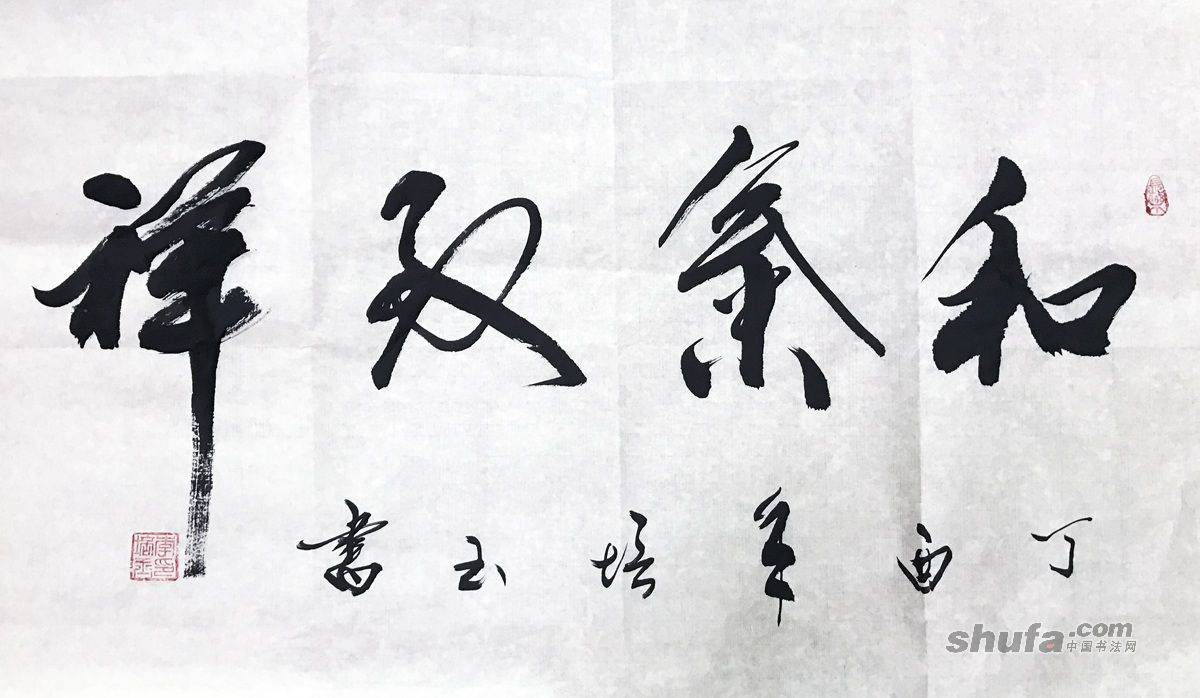 和氣致祥
丁酉年培玉書
shufa.com
中国书法网